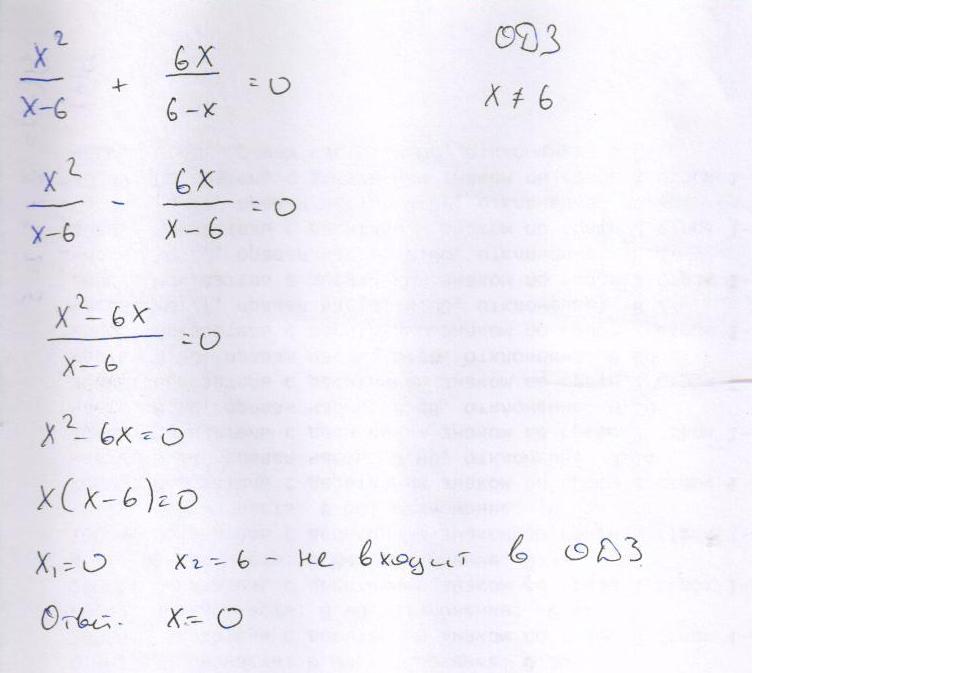 x²/(x-6) + 6x/(6-x) = 0
ОДЗ
x ≠ 6
x²/(x-6) - 6x/(x-6) = 0
(x²-6x)/(x-6) = 0
x²-6x=0
x(x-6)=0
x₁=0 x₂=6 - не входит в ОДЗ
Ответ. x=0